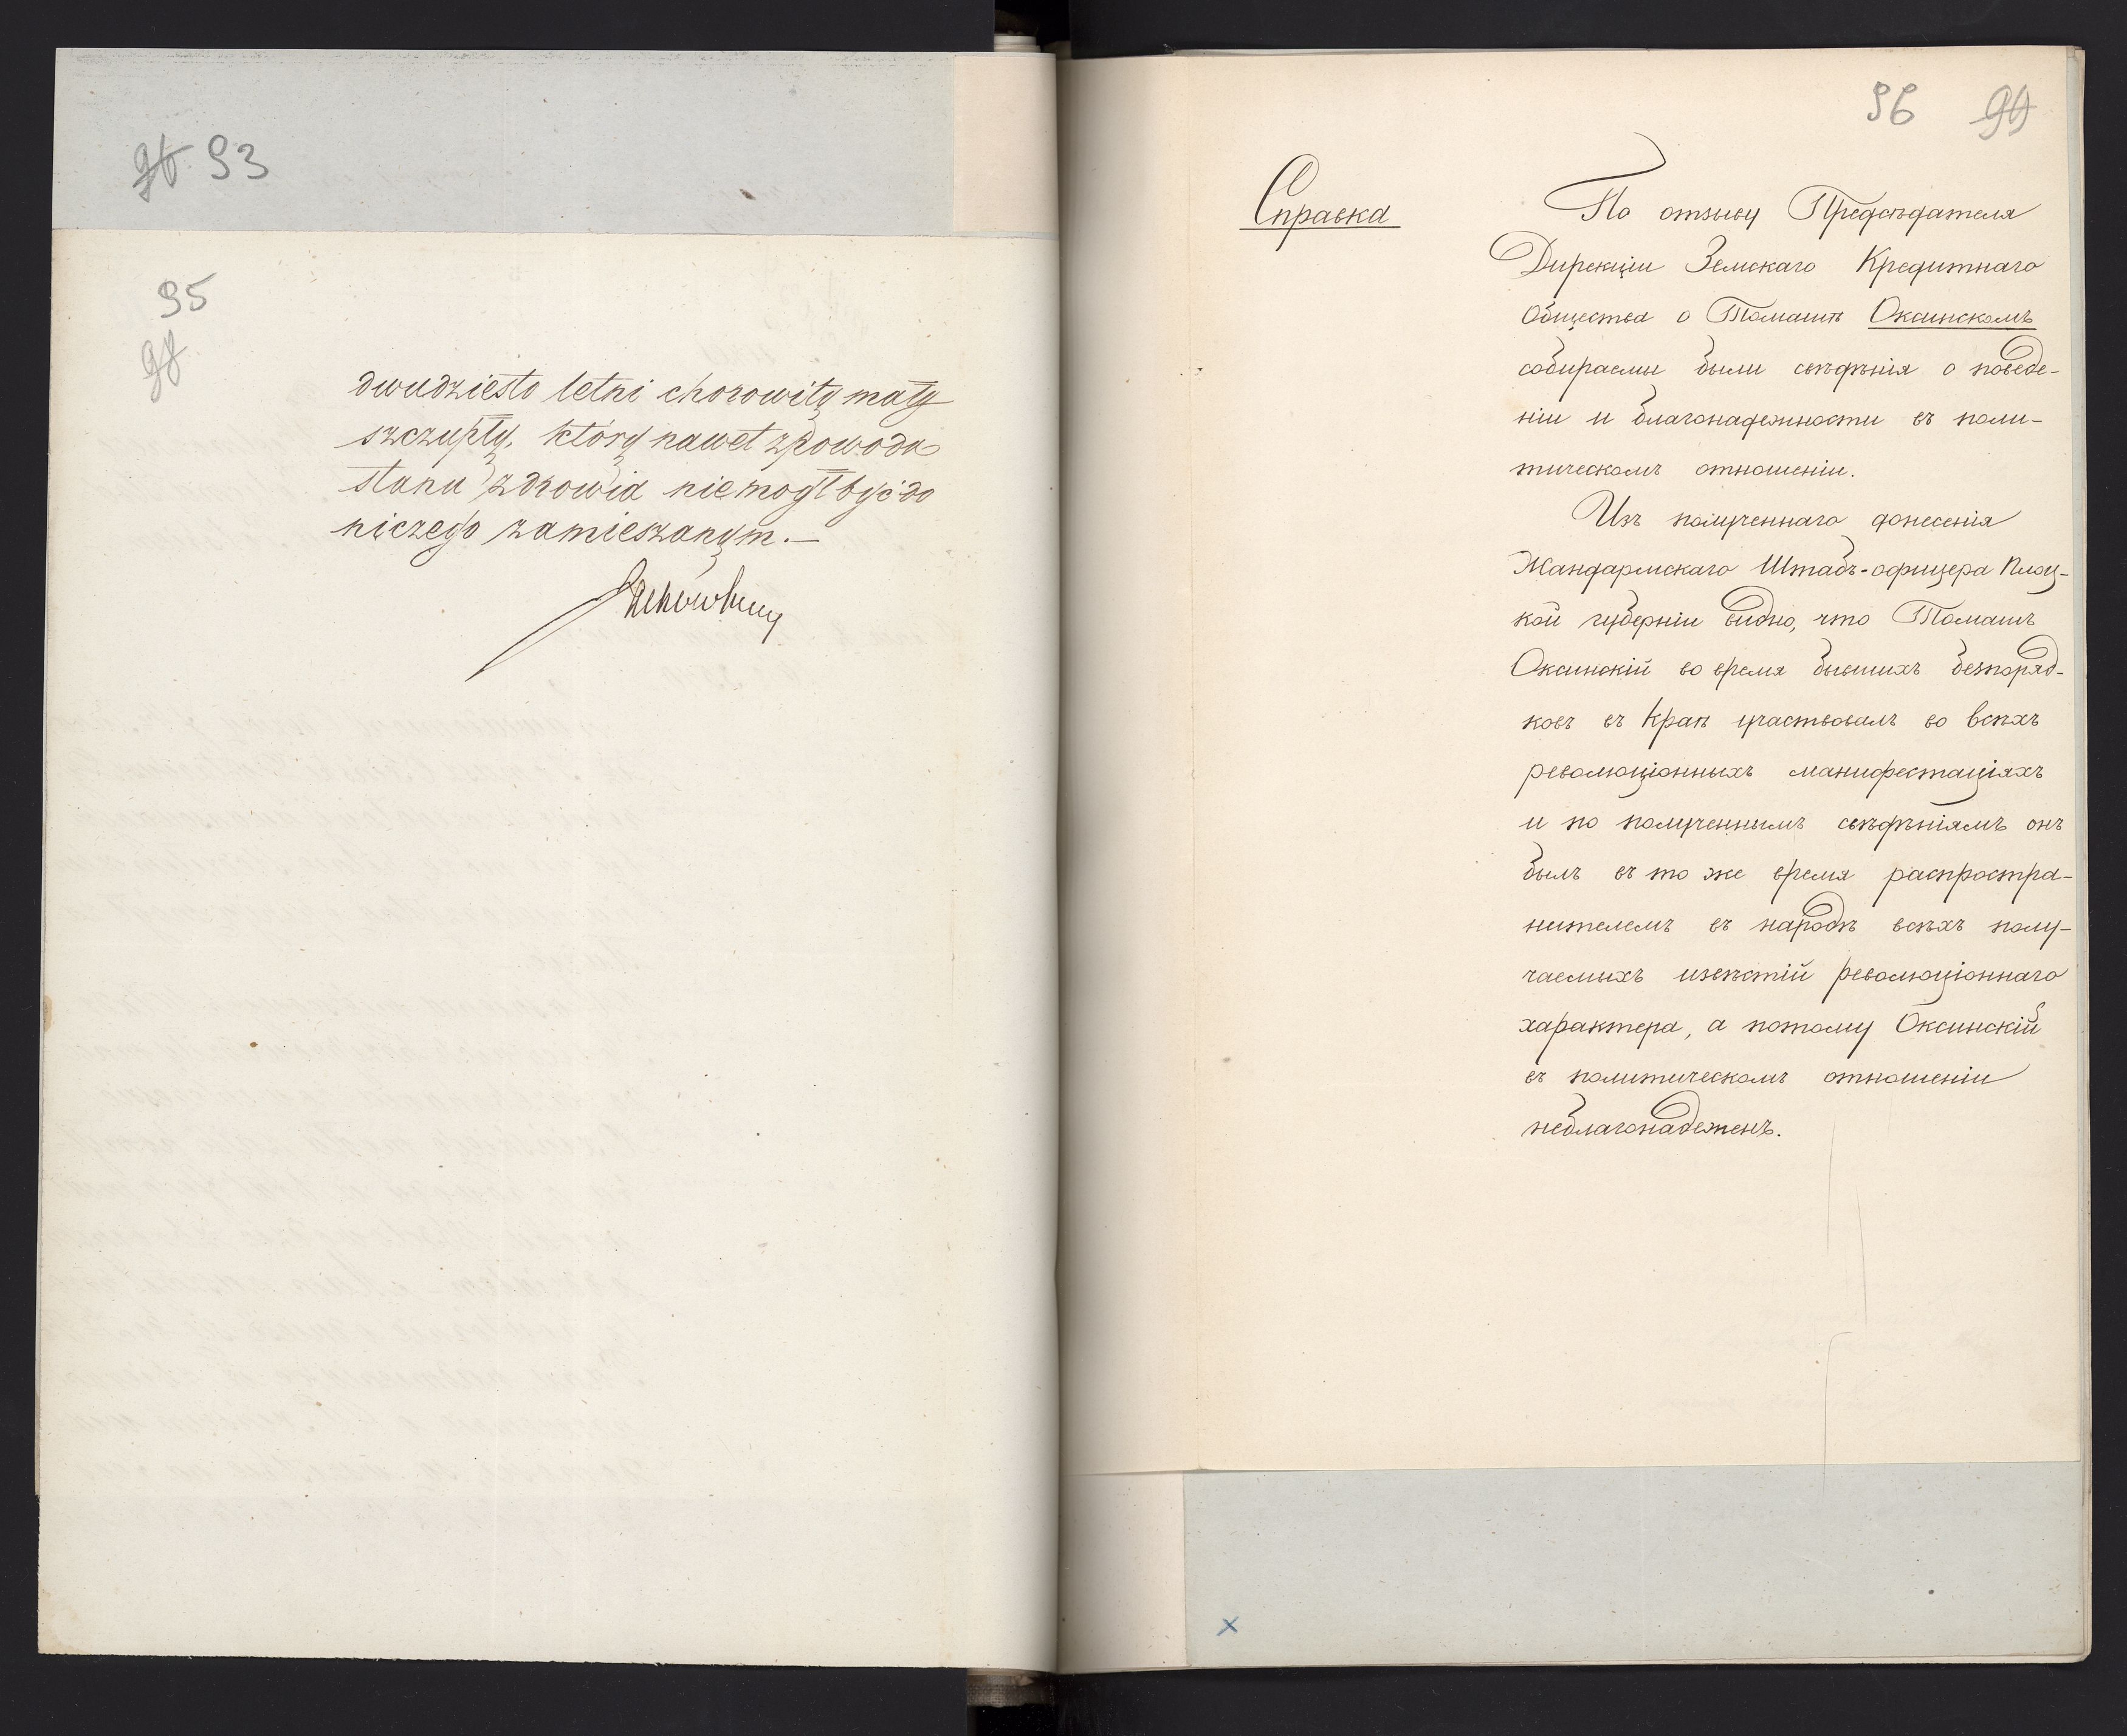 93
95
dwudziesto letni chorowity mały
szczupły, który nawet z powodu
stanu zdrowia nie mógł być do
niczego zamieszanym.—
96
Справка
По отзыву Предсѣдателя
Дирекціи Земскаго Кредитнаго
Общества о Томашѣ Оксинскомъ
собираемы были свѣдѣнія о поведе-
ніи и благонадежности въ поли-
тическомъ отношеніи.
Изъ полученнаго донесенія
Жандармскаго Штабъ-офицера Плоц-
кой губерніи видно, что Томашъ
Оксинскій во время бывшихъ безпоряд-
ковъ въ Краѣ участвовалъ во всѣхъ
революціонныхъ манифестаціяхъ
и по полученнымъ свѣдѣніямъ онъ
былъ въ то же время распростра-
нителемъ въ народѣ всѣхъ полу-
чаемыхъ извѣстій революціоннаго
характера, а потому Оксинскій
въ политическомъ отношеніи
неблагонадеженъ.